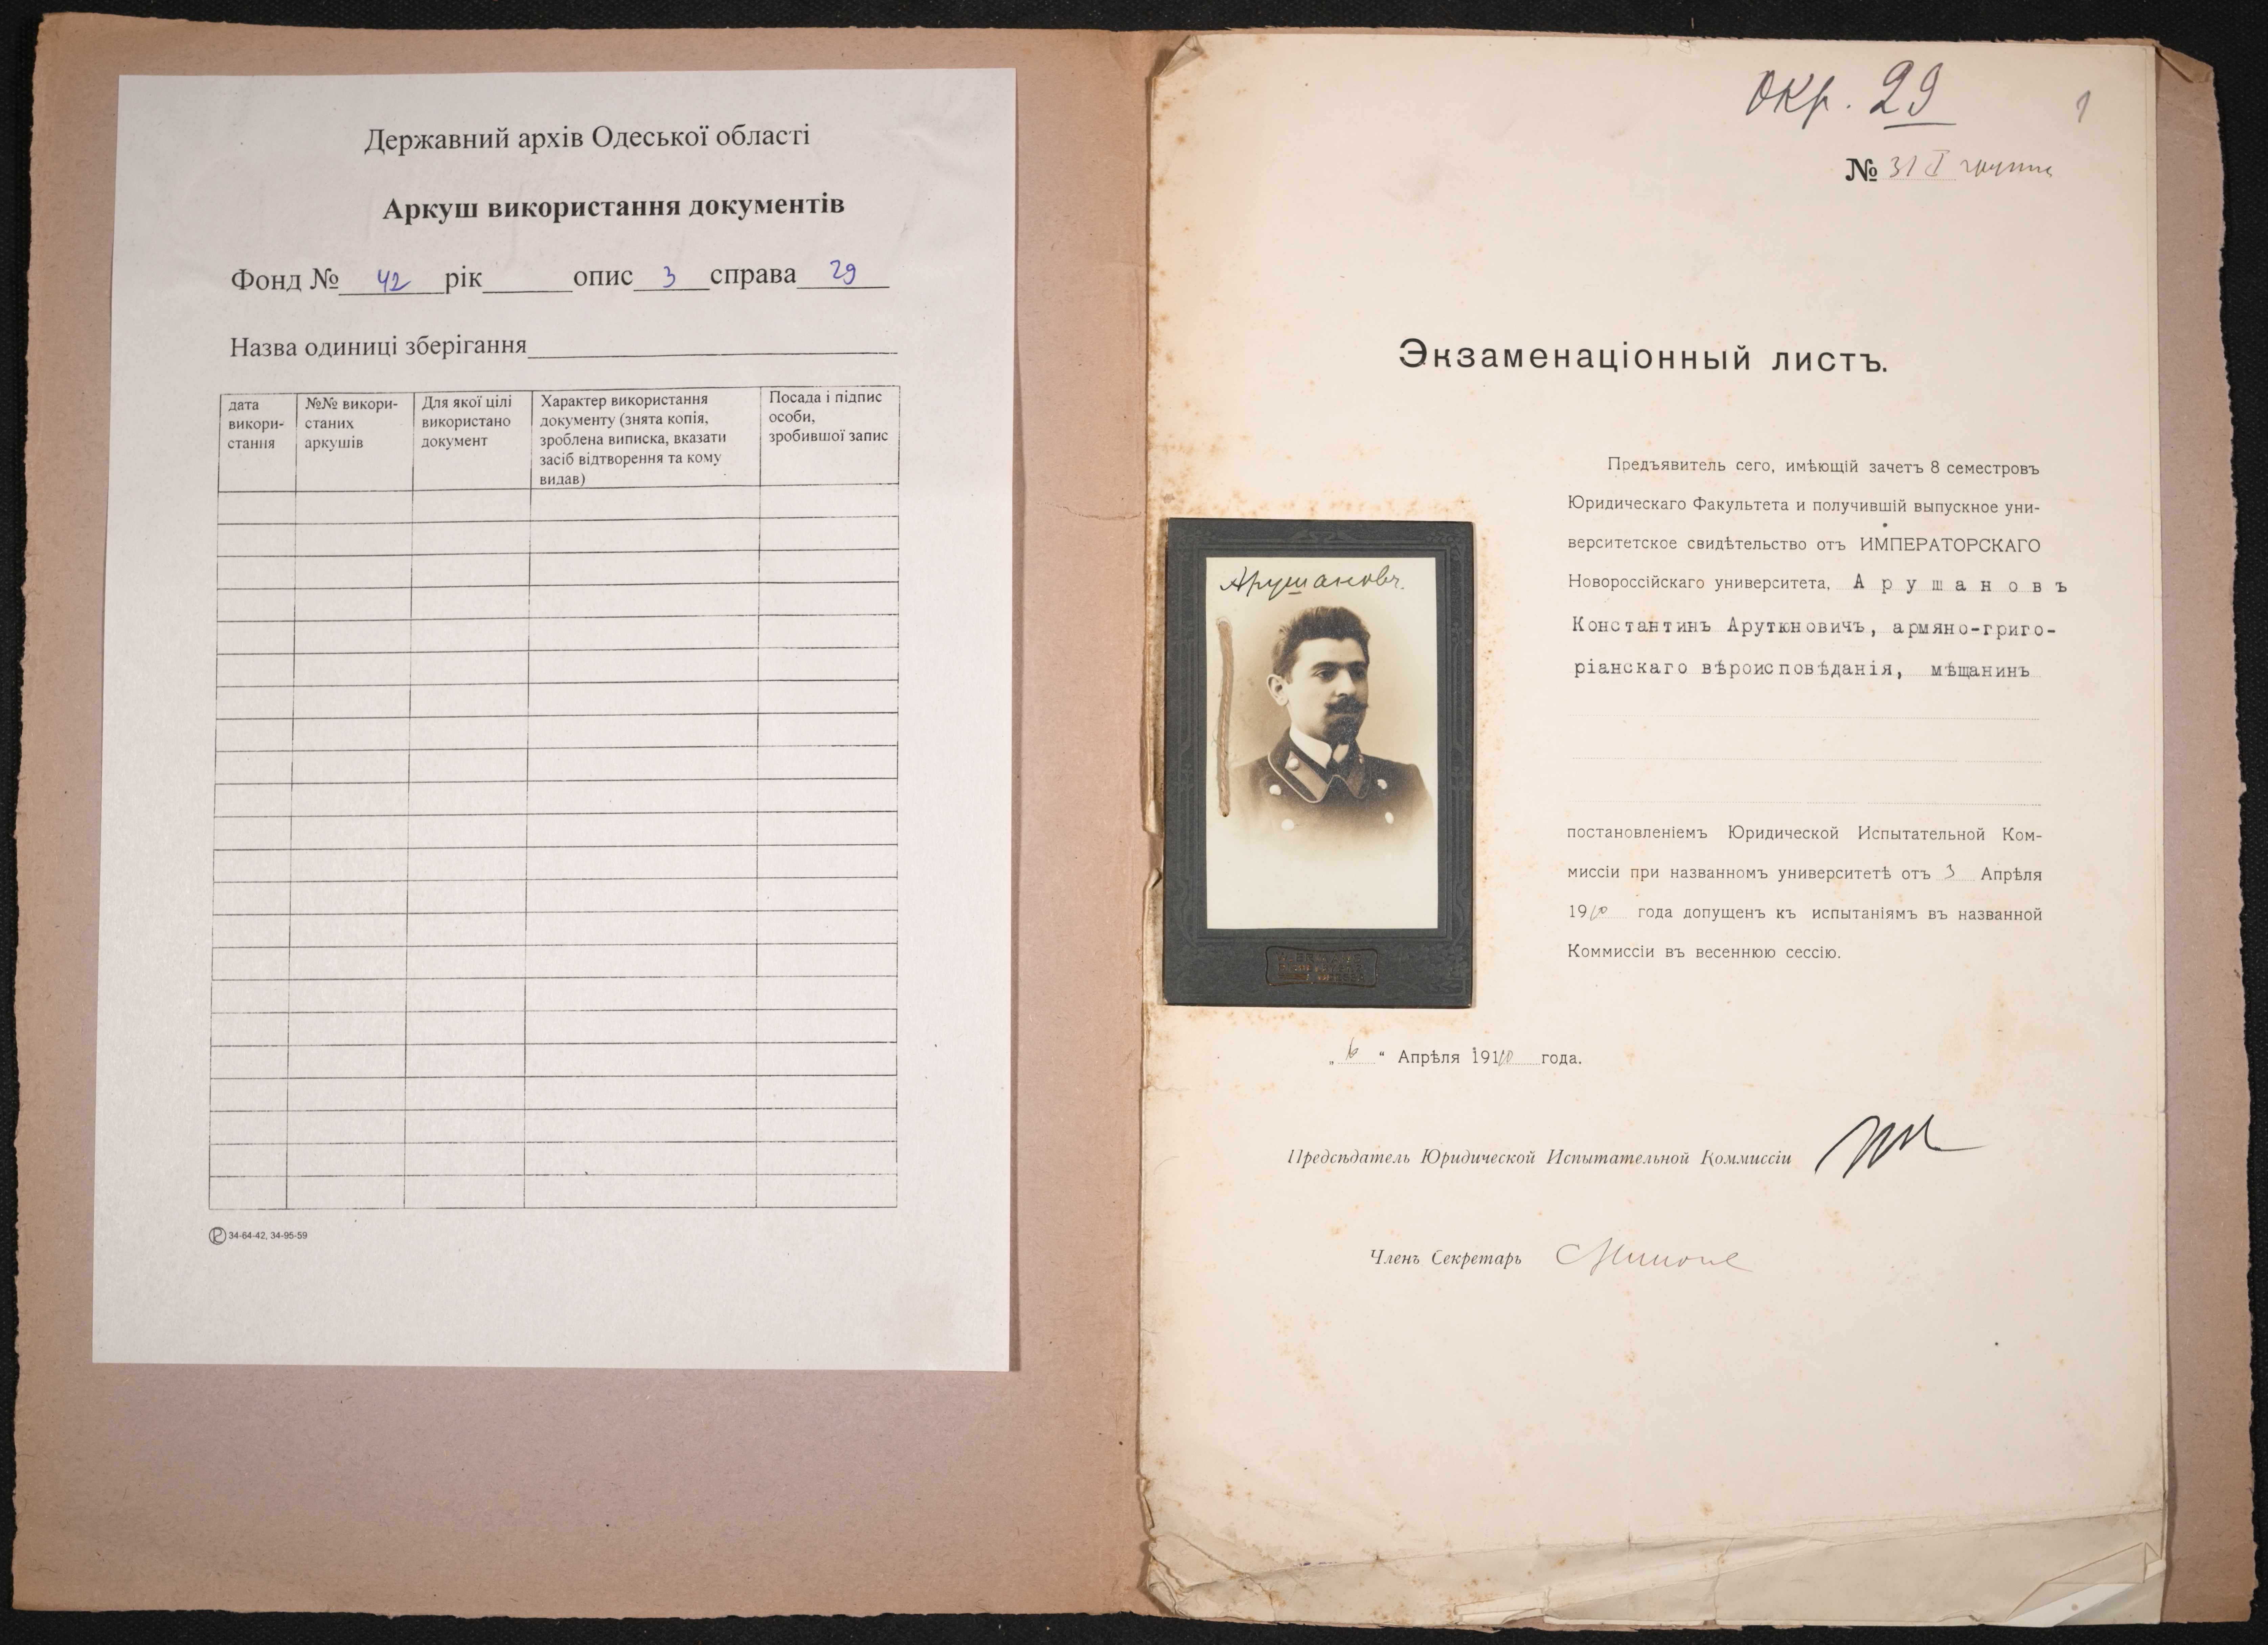 Державний архів Одеської області
Аркуш використання документів
Фонд № 42 рік опис 3 справа 29
Назва одиниці зберігання
дата викори-стання
№№ викори-станих аркушів
Для якої цілі використано документ
Характер використання документу (знята копія, зроблена виписка, вказати засіб відтворення та кому видав)
Посада і підпис особи, зробившої запис
34-64-42, 34-95-59
окр. 29
1
№ 31 I группа
Экзаменаціонный листъ.
Арушановъ.
Предъявитель сего, имѣющій зачетъ 8 семестровъ
Юридическаго Факультета и получившій выпускное уни-
верситетское свидѣтельство отъ ИМПЕРАТОРСКАГО
Новороссійскаго университета, Арушановъ
Константинъ Арутюновичъ, армяно-григо-
ріанскаго вѣроисповѣданія, мѣщанинъ
постановленіемъ Юридической Испытательной Ком-
миссіи при названномъ университетѣ отъ 3 Апрѣля
1910 года допущенъ къ испытаніямъ въ названной
Коммиссіи въ весеннюю сессію.
„6“ Апрѣля 1910 года.
Предсѣдатель Юридической Испытательной Коммиссіи
Членъ Секретарь